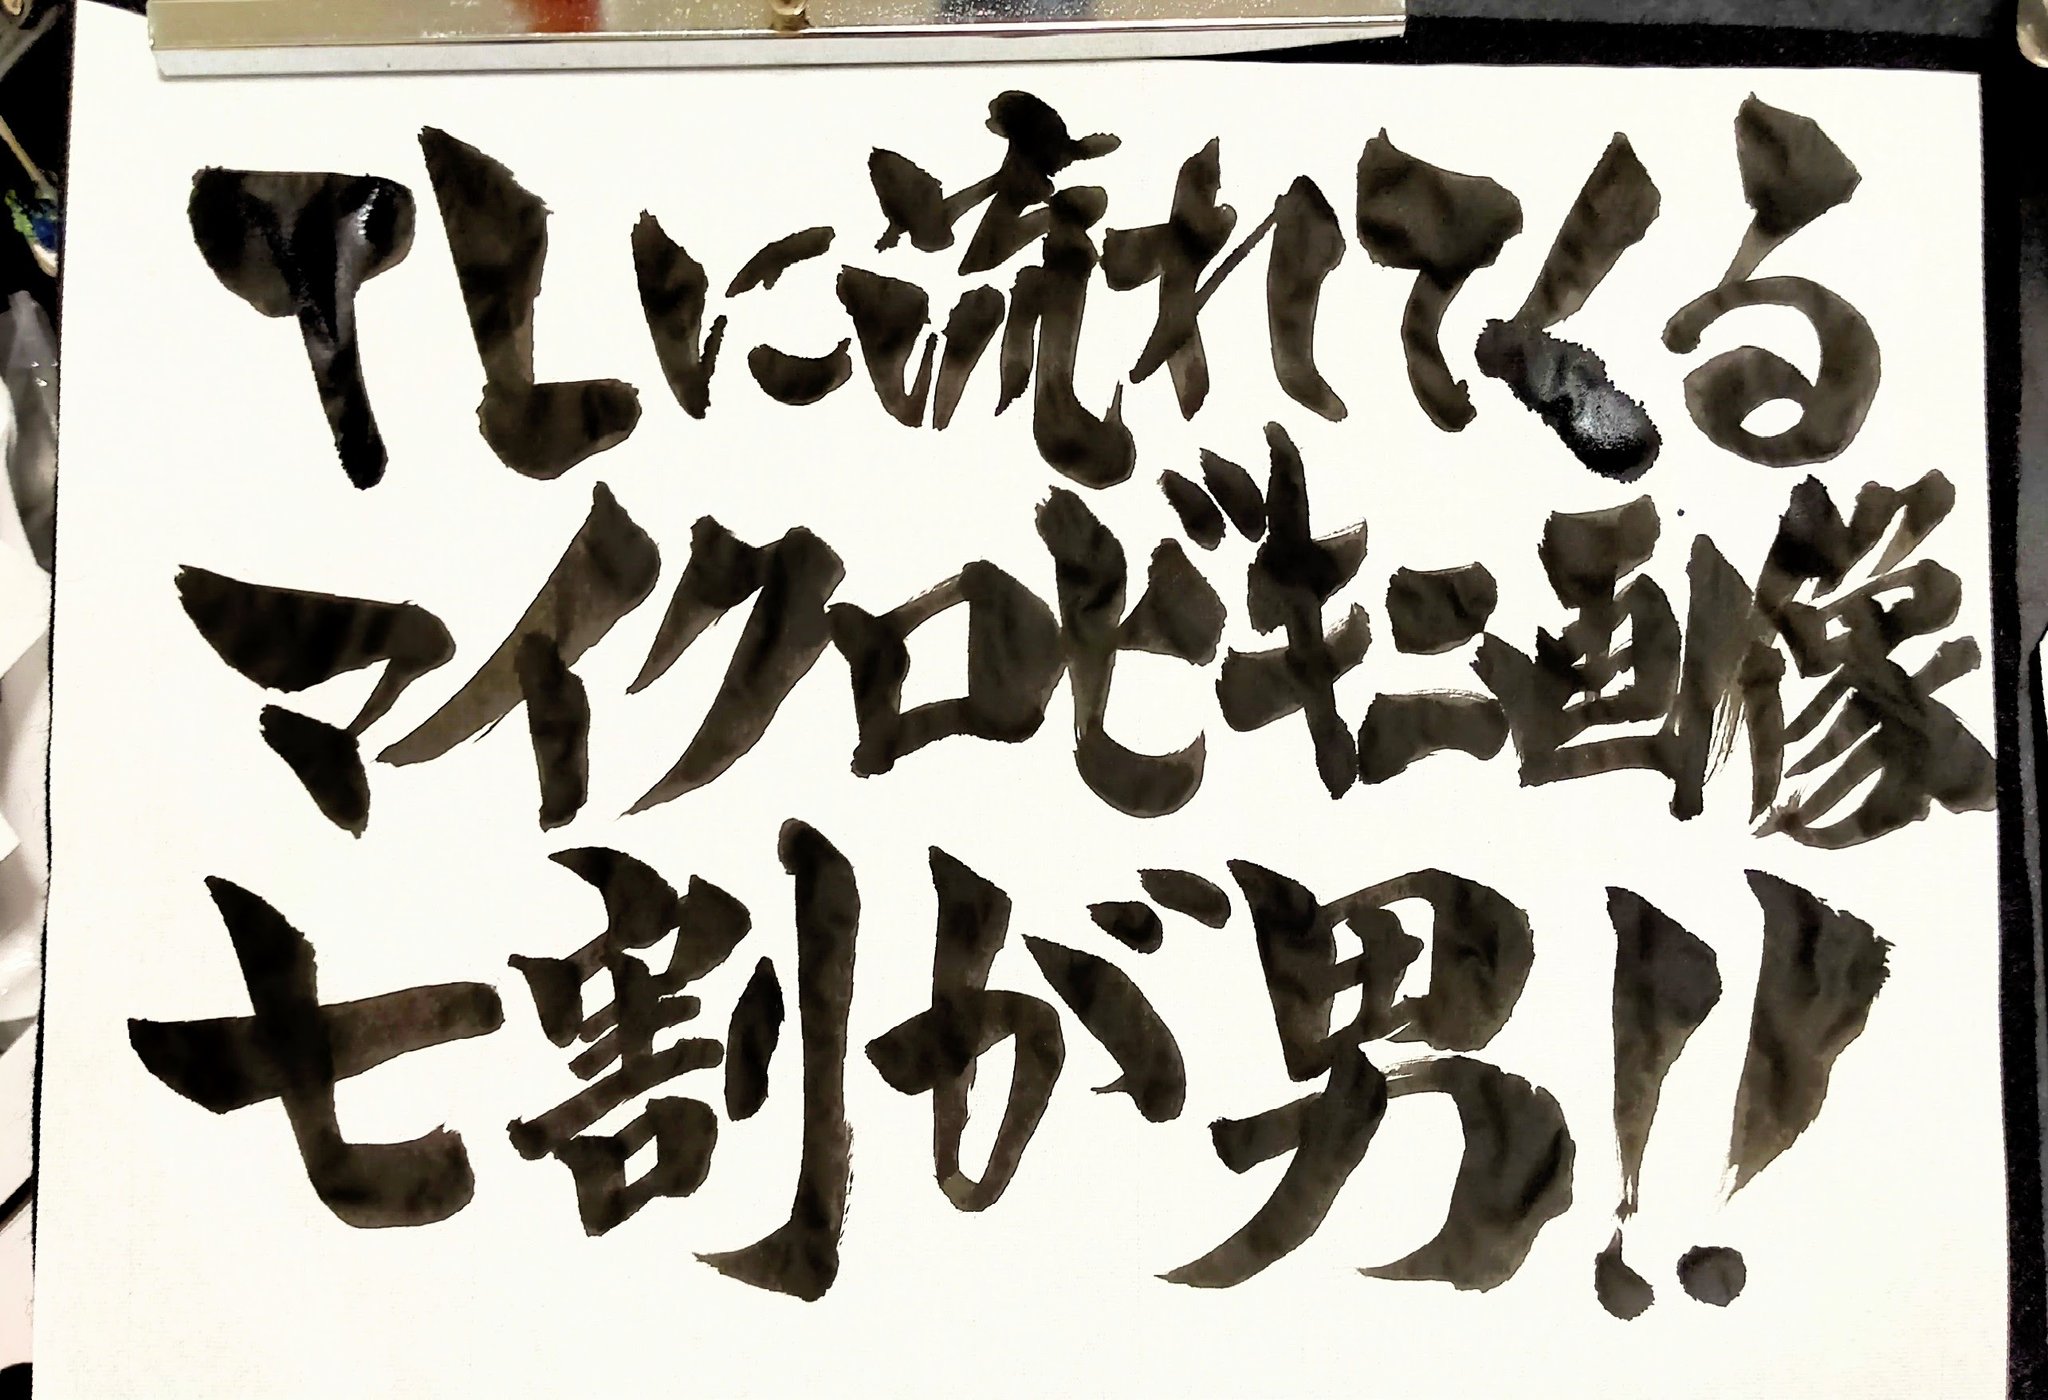 TLに流れてくる
マイクロビキニ画像
七割が男!!